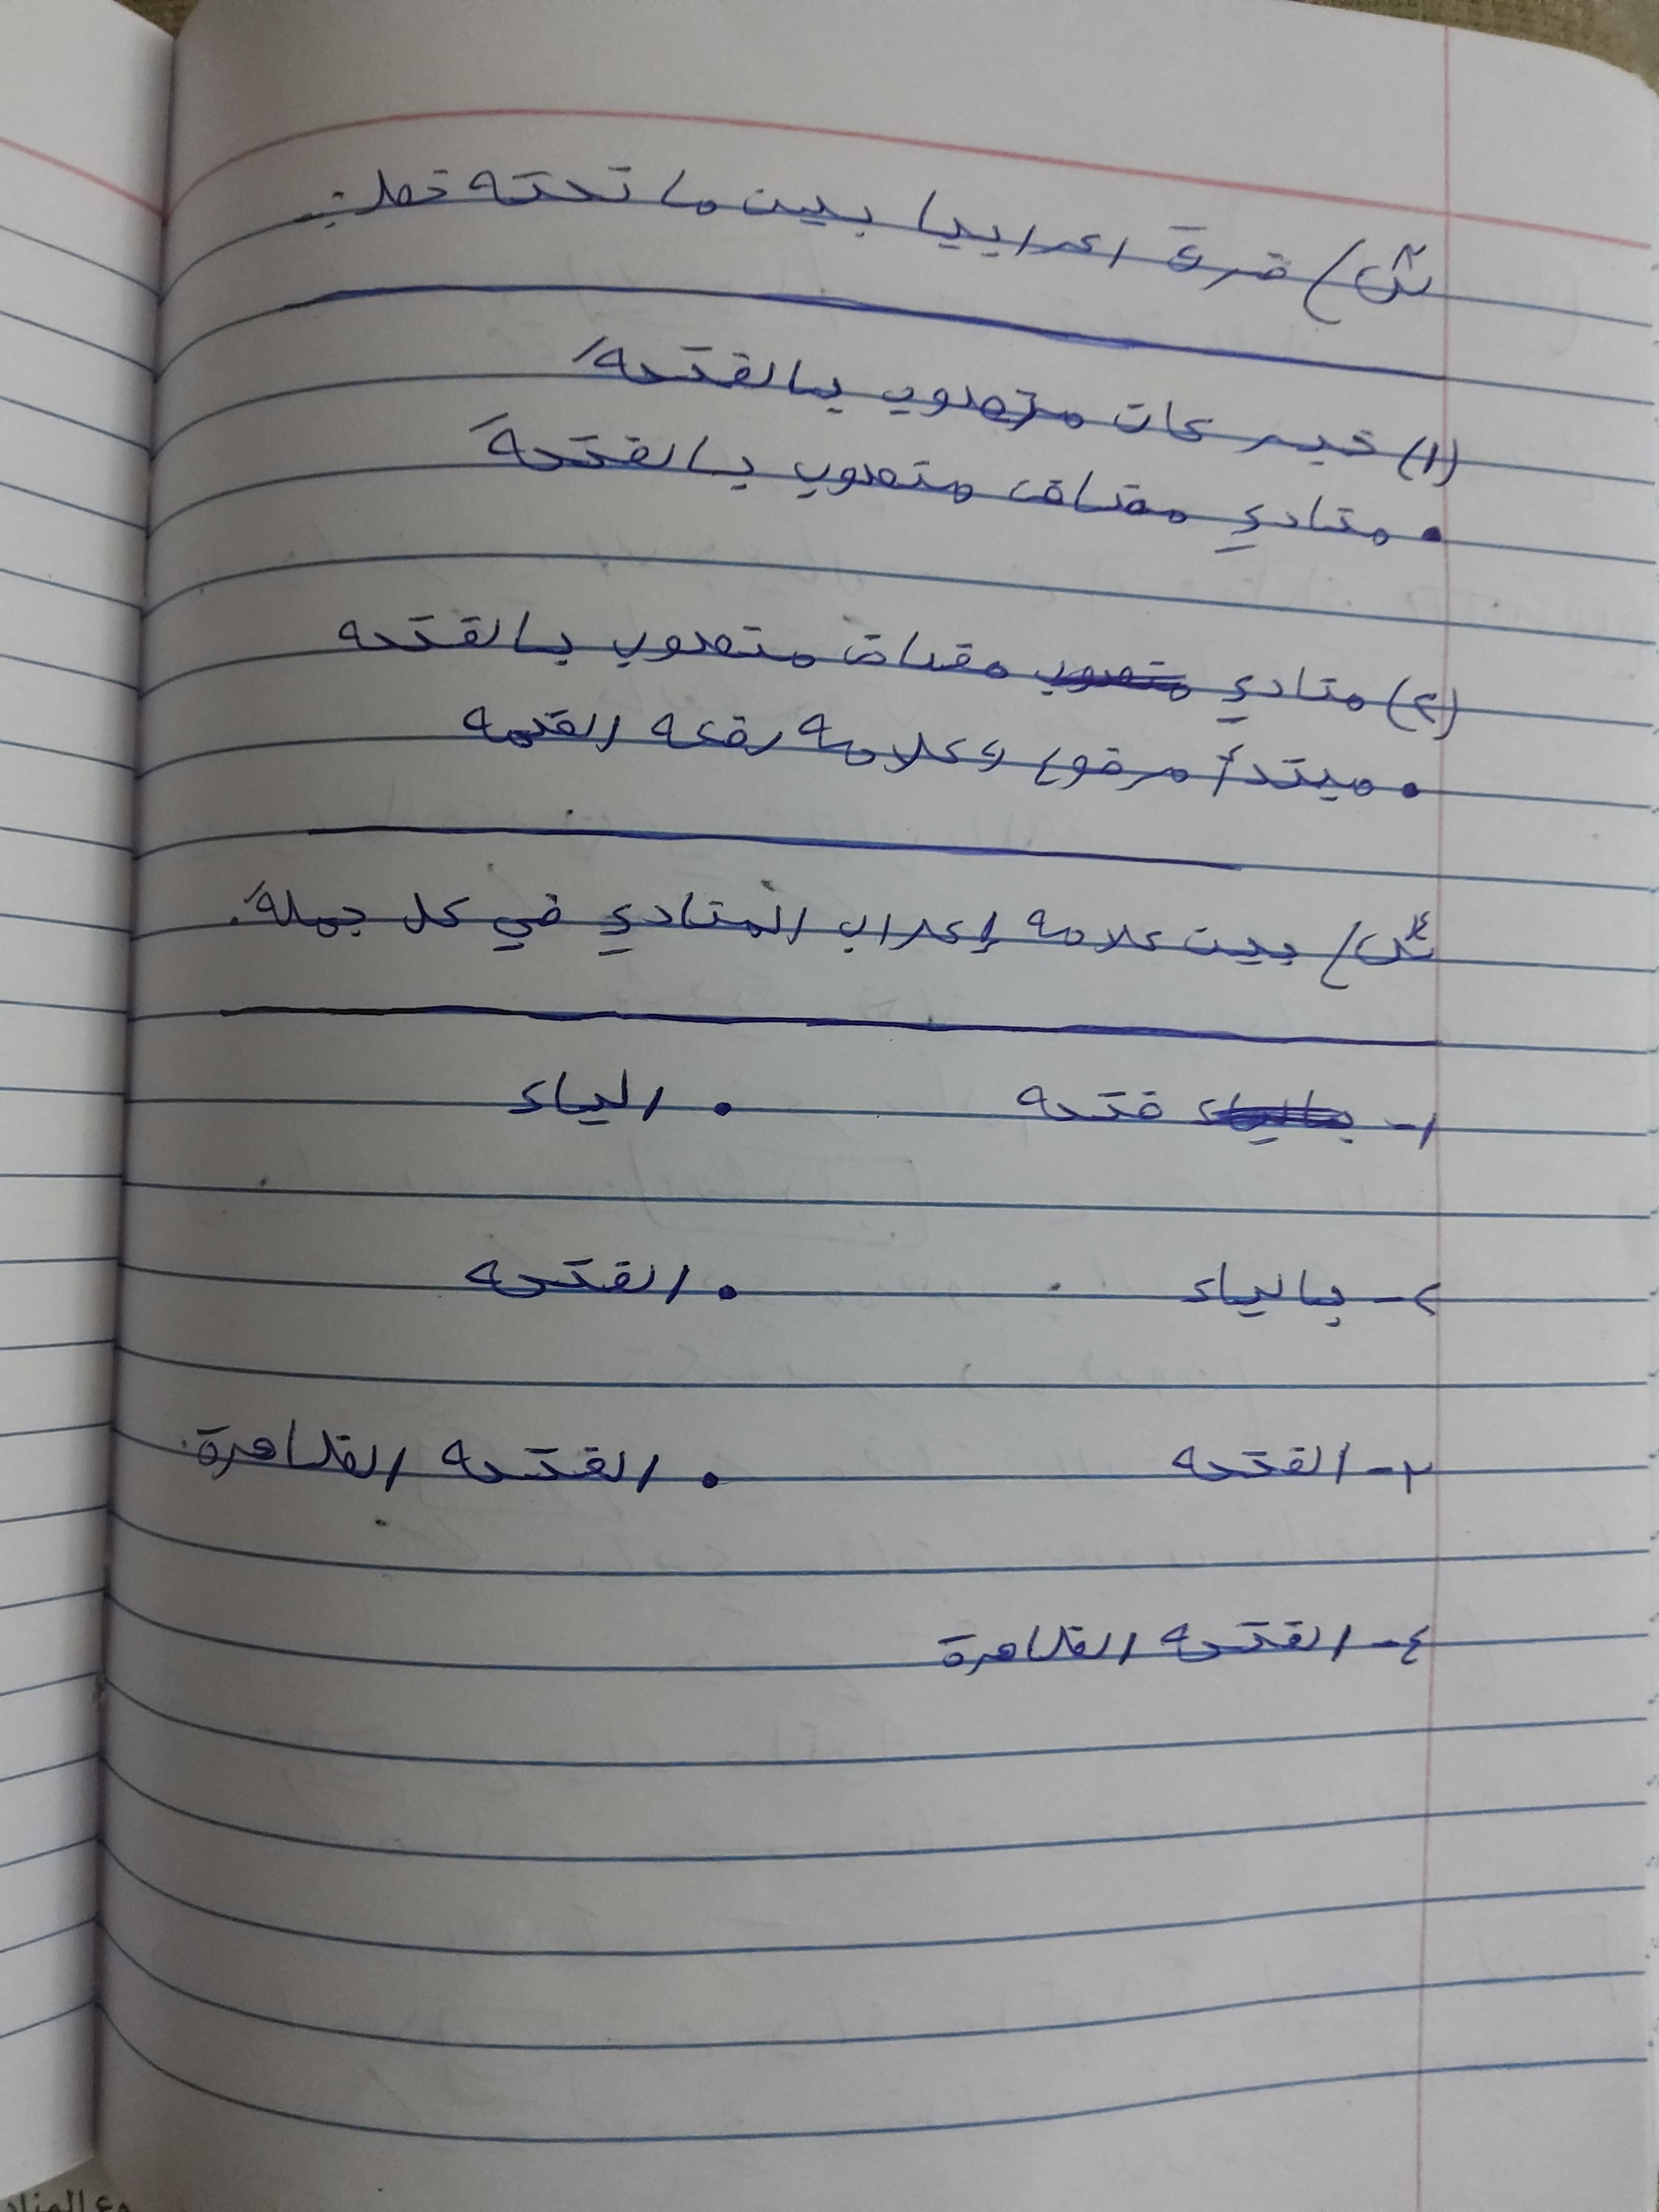 س٣/ فرق اعرابيا بين ما تحته خط:-
(١) خبر كان منصوب بالفتحه
• منادي مضاف منصوب بالفتحة
(٢) منادي منصوب مضاف منصوب بالفتحه
• مبتدأ مرفوع وعلامه رفعه الضمه
س٤/ بين علامه إعراب المنادي في كل جملة.
١- بالياء فتحه • الياء
٢- بالياء • الفتحه
٣- الفتحه • الفتحه الظاهرة
٤- الفتحه الظاهرة